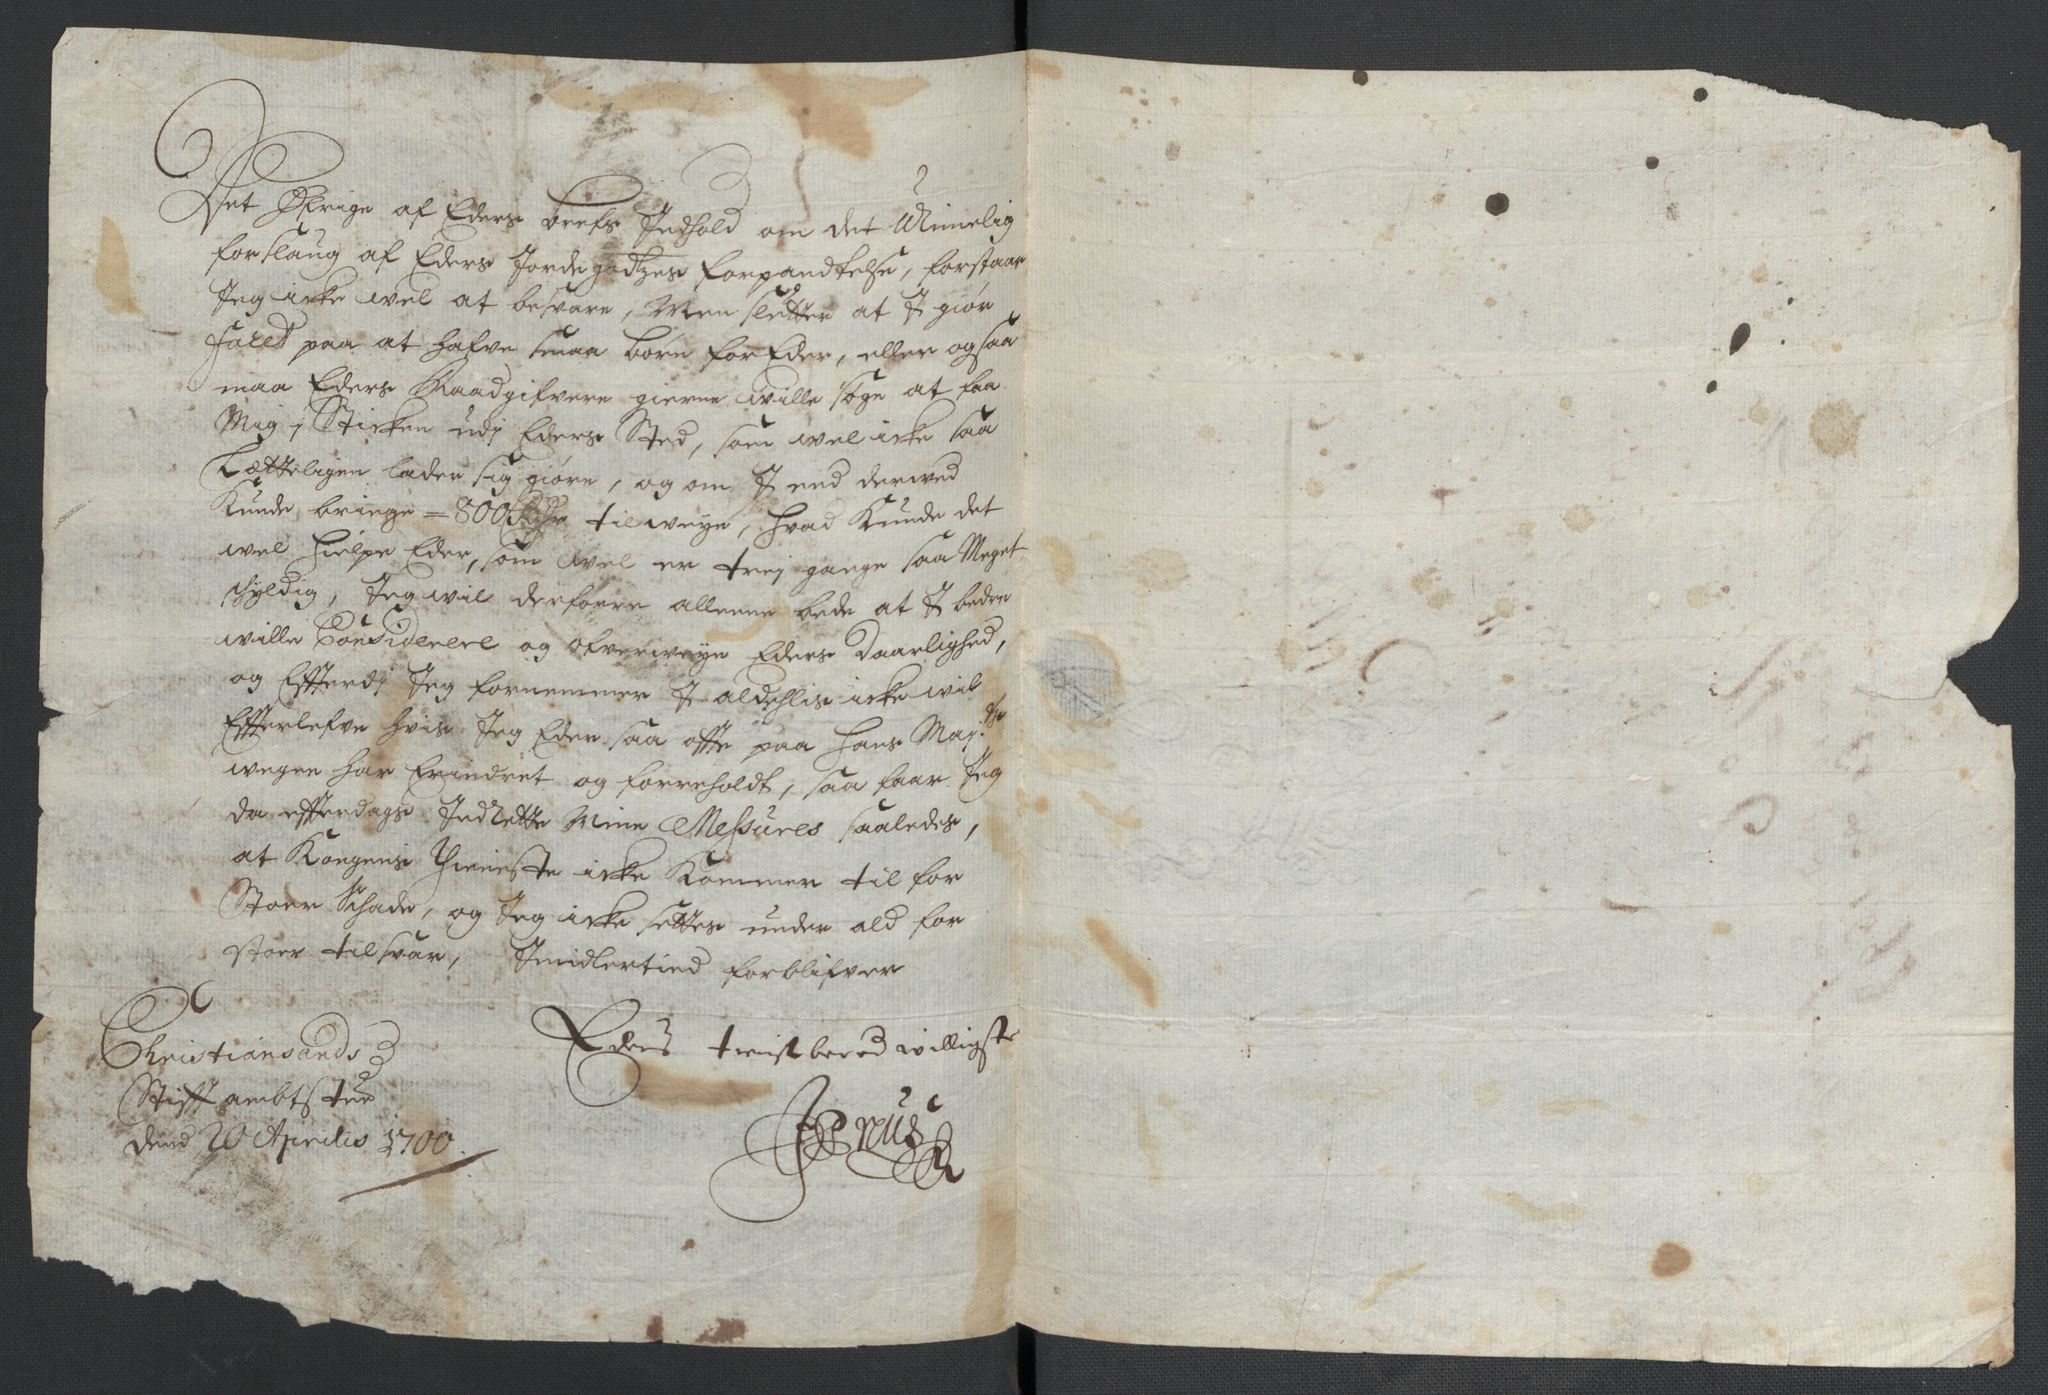 Det Öfrige af Eders brefs Indhold om det Uhimelig
forslaug af Eders Jorde godtzes forpandtelse, forstaar
Jeg icke vel at besvare, Men slutter at I giör
facit paa at hafve smaa börn for Eder, eller ogsaa
maa Eders Raadgifvere gierne wille söge at faa
Mig i Sticken udj Eders Sted, som wel icke saa
Lætteligen lader sig giöre, og om I end derved
Kunde bringe = 800 Rdr tilweye, hvad Kunde det
wel hielpe Eder, som wel er trej gange saa Meget
skyldig, Jeg wil derforre alleene bede at I bedre
wille Considerere og ofverweye Eders Daarlighed,
og Efterdj Jeg fornemmer I aldehlis icke wil
Efterlefve hvis Jeg Eder saa ofte paa Hans Maj:ts
wegne har Erindret og forreholdt, saa faar Jeg
da efterdags Indrette Mine Messures saaledes,
at Kongens Thieniste icke Kommer til for
Stoer Skade, og Jeg icke settes under ald for
stoer tilsvar, Imidlertiid forblifver
Christiansands
Stift ambtstue
dend 20 Aprilis 1700.
Eders tienistbered willigste